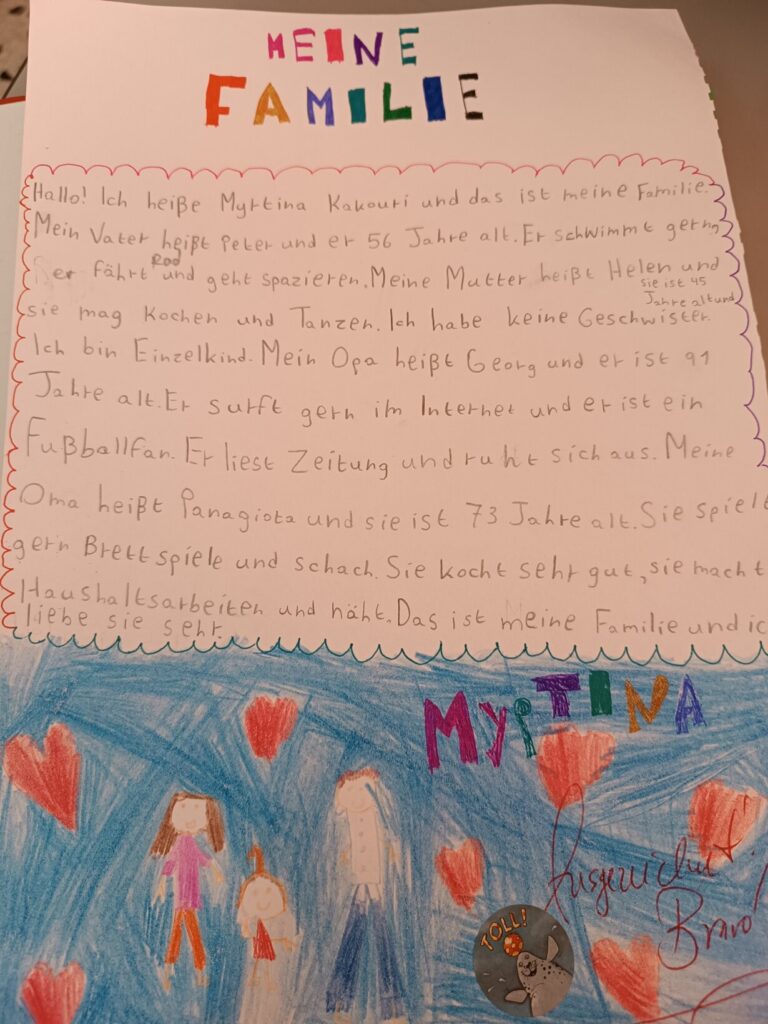 MEINE
FAMILIE
Hallo! Ich heiße Myrtina Kakouri und das ist meine Familie.
Mein Vater heißt Peter und er 56 Jahre alt. Er schwimmt gern,
er fährt Rad und geht spazieren. Meine Mutter heißt Helen und
sie ist 45
Jahre alt und
sie mag Kochen und Tanzen. Ich habe keine Geschwister.
Ich bin Einzelkind. Mein Opa heißt Georg und er ist 91
Jahre alt. Er surft gern im Internet und er ist ein
Fußballfan. Er liest Zeitung und ruht sich aus. Meine
Oma heißt Panagiota und sie ist 73 Jahre alt. Sie spielt
gern Brettspiele und schach. Sie kocht sehr gut, sie macht
Haushaltsarbeiten und näht. Das ist meine Familie und ic
liebe sie sehr.
MYrTINA
Ausgezeichnet!
Bravo!
TOLL!